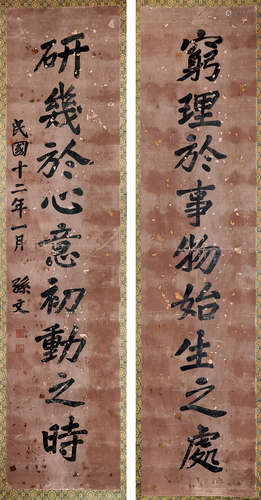 窮理於事物始生之處
研幾於心意初動之時
民國十二年一月 孫文